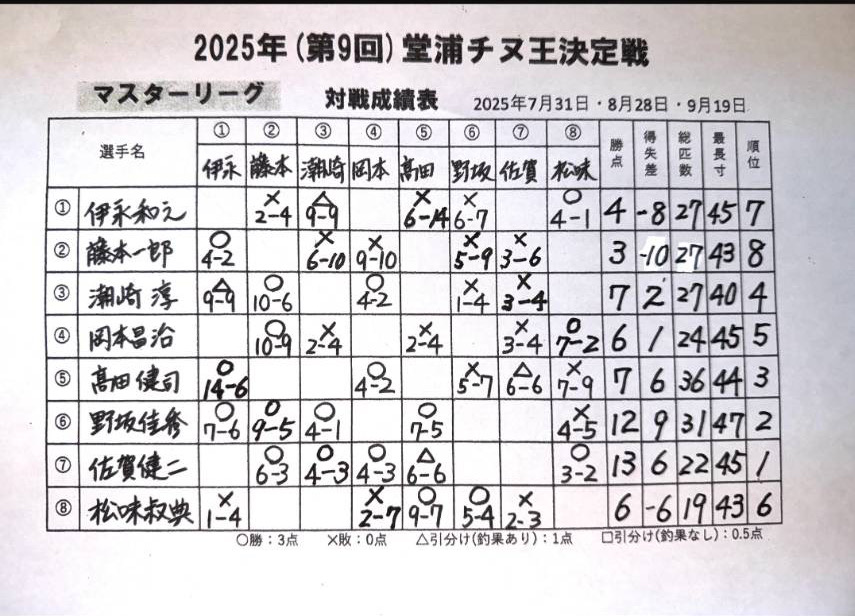 2025年(第9回)堂浦チヌ王決定戦
マスターリーグ 対戦成績表 2025年7月31日・8月28日・9月19日
選手名 ① ② ③ ④ ⑤ ⑥ ⑦ ⑧ 勝点 得失差 総匹数 最長寸 順位
伊永 藤本 潮崎 岡本 髙田 野坂 佐賀 松味
① 伊永和元 ×2-4 △9-9 ×6-14 ×6-7 ○4-1 4 -8 27 45 7
② 藤本一郎 ○4-2 ×6-10 ×9-10 ×5-9 ×3-6 3 -10 27 43 8
③ 潮崎淳 △9-9 ○10-6 ○4-2 ×1-4 ×3-4 7 2 27 40 4
④ 岡本昌治 ○10-9 ×2-4 ×2-4 ×3-4 ○7-2 6 1 24 45 5
⑤ 髙田健司 ○14-6 ○4-2 ×5-7 △6-6 ×7-9 7 6 36 44 3
⑥ 野坂佳秀 ○7-6 ○9-5 ○4-1 ○7-5 ×4-5 12 9 31 47 2
⑦ 佐賀健二 ○6-3 ○4-3 ○4-3 △6-6 ○3-2 13 6 22 45 1
⑧ 松味叔典 ×1-4 ×2-7 ○9-7 ○5-4 ×2-3 6 -6 19 43 6
○勝：3点 ×敗：0点 △引分け(釣果あり)：1点 □引分け(釣果なし)：0.5点